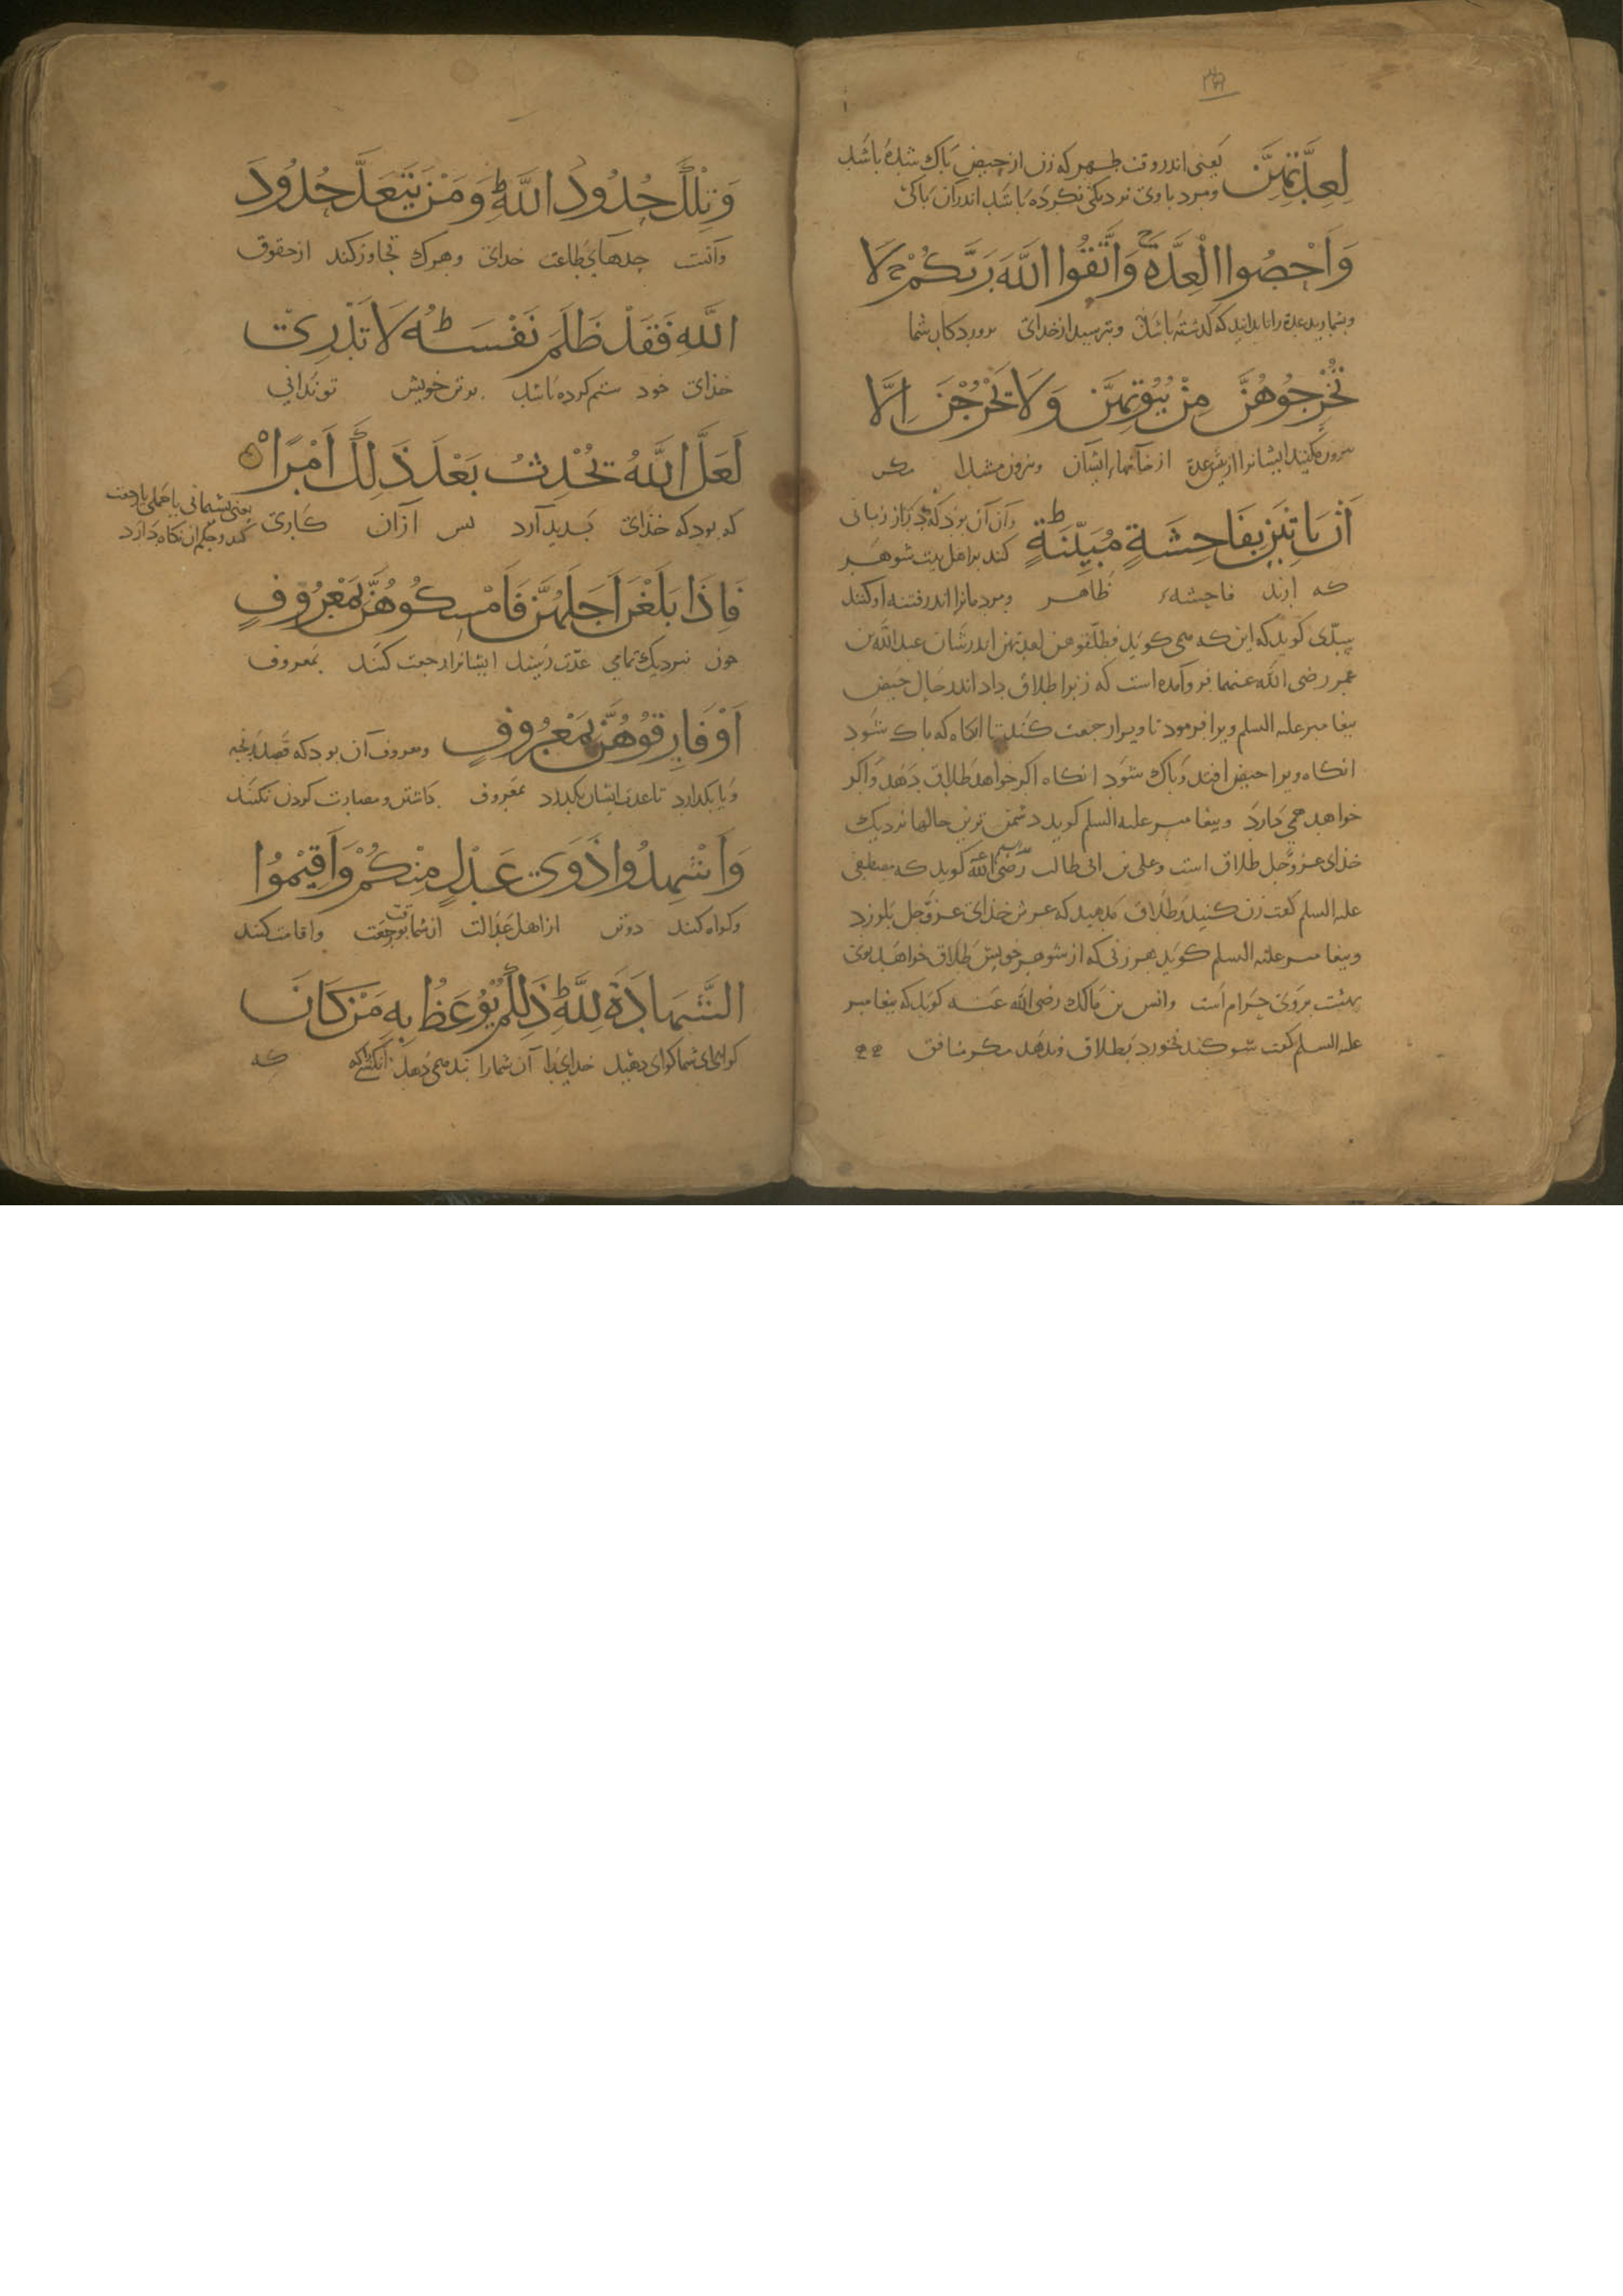 لِعِدَّتِهِنَّ یعنی اندر وقت طهر که زن از حیض پاک شده باشد
و مرد با وی نزدیکی نکرده باشد اندران پاکی
وَاَحْصُوا الْعِدَّةَ ج وَاتَّقُوا اللّٰهَ رَبَّكُمْ ج لَا
و بشمارید عدة را تا بدانید که گذشته باشد و بترسید از خدای پروردگار شما
تُخْرِجُوهُنَّ مِنْ بُيُوتِهِنَّ وَلَا يَخْرُجْنَ اِلَّا
بیرون مکنید ایشانرا از خانهاء ایشان و بیرون مشدا مگر
اَنْ يَأْتِينَ بِفَاحِشَةٍ مُبَيِّنَةٍ ط و آن آن بود که دراز زبانی
کند بر اهل بیت شوهر
که آرند فاحشهء ظاهر و مردمانرا اندر فتنه اوکنند
سدّی گوید که این که می گوید فطلّقوهن لعدتهن اندر شان عبد الله بن
عمر رضی الله عنهما فرو آمده است که زنرا طلاق داد اندر حال حیض
پیغامبر علیه السلم ویرا فرمود تا ویرا رجعت کند تا انگاه که پاک شود
انگاه ویرا حیض افتد و پاک شود انگاه اگر خواهد طلاق دهد و اگر
خواهد می دارد و پیغامبر علیه السلم گوید دشمن ترین حالها نزدیک
خذای عزّوجل طلاق است و علی بن ابی طالب رضی الله عنه گوید که مصطفی
علیه السلم گفت زن کنید و طلاق مدهید که عرش خذای عزّوجل بلرزد
و پیغامبر علیه السلم گوید هر زنی که از شوهر خویش طلاق خواهد بوی
بهشت بر وی حرام است و انس بن مالک رضی الله عنه گوید که پیغامبر
علیه السلم گفت سوگند نخورد بطلاق و ندهد مگر منافق
وَتِلْكَ حُدُودُ اللّٰهِ ط وَمَنْ يَتَعَدَّ حُدُودَ
و آنست حدهای طاعت خدای و هرک تجاوز کند از حقوق
اللّٰهِ فَقَدْ ظَلَمَ نَفْسَهُ ط لَا تَدْرِي
خذای خود ستم کرده باشد بر تن خویش تو ندانی
لَعَلَّ اللّٰهَ يُحْدِثُ بَعْدَ ذٰلِكَ اَمْرًا
که بود که خذای پدید آرد پس از آن کاری یعنی پشیمانی یا حملی تا رجعت
کند و حکم آن نگاه دارد
فَاِذَا بَلَغْنَ اَجَلَهُنَّ فَاَمْسِكُوهُنَّ بِمَعْرُوفٍ
چون نزدیک تمامی عدّت رسند ایشانرا رجعت کنند بمعروف
اَوْ فَارِقُوهُنَّ بِمَعْرُوفٍ و معروف آن بود که قصد رنجه
و یا بگذارد تا عدت ایشان بگذرد بمعروف داشتن و مضارت کردن نکنند
وَاَشْهِدُوا ذَوَيْ عَدْلٍ مِنْكُمْ وَاَقِيمُوا
و گواه کنند دو تن از اهل عدالت از شما بوقت رجعت و اقامت کنند
الشَّهَادَةَ لِلّٰهِ ط ذٰلِكُمْ يُوعَظُ بِهِ مَنْ كَانَ
گواهی شما گوای دهید خدایرا آن شمارا پند می دهد انکس را که که